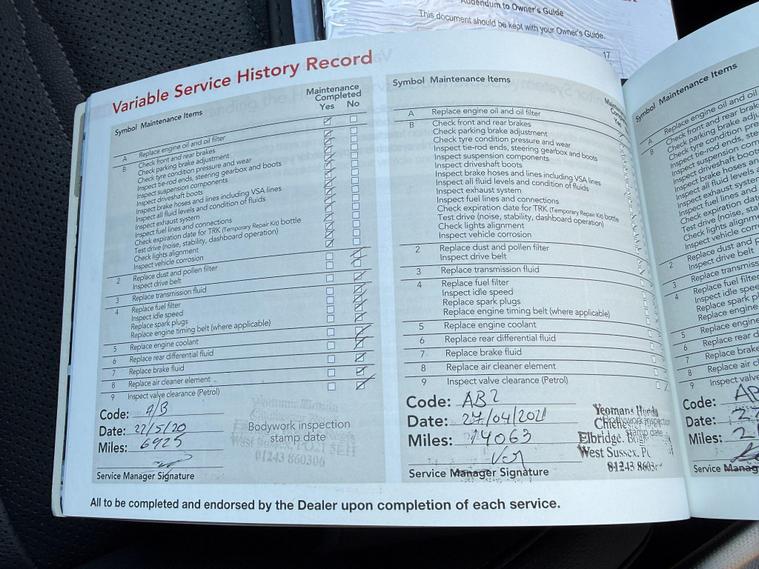 Addendum to Owner's Guide
This document should be kept with your Owner's Guide.
17
Variable Service History Record
Maintenance
Completed
Symbol Maintenance Items
Yes No
A Replace engine oil and oil filter
B Check front and rear brakes
Check parking brake adjustment
Check tyre condition pressure and wear
Inspect tie-rod ends, steering gearbox and boots
Inspect suspension components
Inspect driveshaft boots
Inspect brake hoses and lines including VSA lines
Inspect all fluid levels and condition of fluids
Inspect exhaust system
Inspect fuel lines and connections
Check expiration date for TRK (Temporary Repair Kit) bottle
Test drive (noise, stability, dashboard operation)
Check lights alignment
Inspect vehicle corrosion
2 Replace dust and pollen filter
Inspect drive belt
3 Replace transmission fluid
4 Replace fuel filter
Inspect idle speed
Replace spark plugs
Replace engine timing belt (where applicable)
5 Replace engine coolant
6 Replace rear differential fluid
7 Replace brake fluid
8 Replace air cleaner element
9 Inspect valve clearance (Petrol)
Code: A/B
Date: 22/5/20
Miles: 6925
Service Manager Signature
Bodywork inspection
stamp date
01243 860306
Symbol Maintenance Items
A Replace engine oil and oil filter
B Check front and rear brakes
Check parking brake adjustment
Check tyre condition pressure and wear
Inspect tie-rod ends, steering gearbox and boots
Inspect suspension components
Inspect driveshaft boots
Inspect brake hoses and lines including VSA lines
Inspect all fluid levels and condition of fluids
Inspect exhaust system
Inspect fuel lines and connections
Check expiration date for TRK (Temporary Repair Kit) bottle
Test drive (noise, stability, dashboard operation)
Check lights alignment
Inspect vehicle corrosion
2 Replace dust and pollen filter
Inspect drive belt
3 Replace transmission fluid
4 Replace fuel filter
Inspect idle speed
Replace spark plugs
Replace engine timing belt (where applicable)
5 Replace engine coolant
6 Replace rear differential fluid
7 Replace brake fluid
8 Replace air cleaner element
9 Inspect valve clearance (Petrol)
Code: AB2
Date: 27/04/2021
Miles: 14063
Service Manager Signature
Yeomans Honda
Elbridge,
West Sussex,
01243
All to be completed and endorsed by the Dealer upon completion of each service.
Symbol Maintenance Items
A Replace engine oil and oil
B Check front and rear
Check parking brake
Check tyre condition
Inspect tie-rod ends,
Inspect suspension
Inspect driveshaft
Inspect brake hoses
Inspect all fluid levels
Inspect exhaust
Inspect fuel lines and
Check expiration
Test drive (noise,
Check lights
Inspect vehicle
2 Replace dust and
Inspect drive belt
3 Replace
4 Replace fuel
Inspect idle
Replace spark
Replace engine
5 Replace
6 Replace rear
7 Replace
8 Replace air
9 Inspect valve
Code:
Date:
Miles:
Service